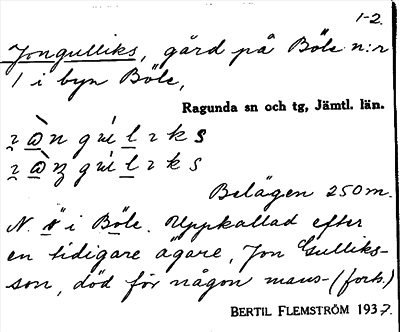 1-2.
Jongulliks, gård på Böle n:r
1 i byn Böle,
Ragunda sn och tg, Jämtl. län.
Belägen 250 m.
N. ö i Böle. Uppkallad efter
en tidigare ägare, Jon Gulliks-
son, död för någon mans- (forts.)
BERTIL FLEMSTRÖM 1937.